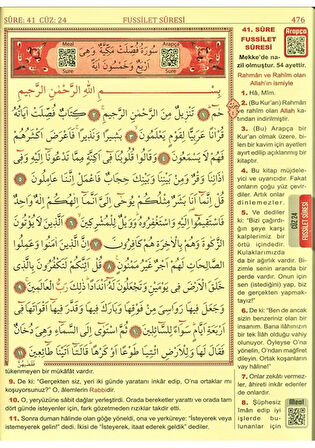 SÛRE: 41 CÜZ: 24
FUSSİLET SÛRESİ
476
Meal
Sure
سُورَةُ فُصِّلَتْ مَكِّيَّةٌ وَهِيَ
اَرْبَعٌ وَخَمْسُونَ اٰيَةً
Arapça
Sure
بِسْمِ اللّٰهِ الرَّحْمٰنِ الرَّحِيمِ
حٰمٓ ﴿١﴾ تَنْزِيلٌ مِنَ الرَّحْمٰنِ الرَّحِيمِ ﴿٢﴾ كِتَابٌ فُصِّلَتْ اٰيَاتُهُ
قُرْاٰنًا عَرَبِيًّا لِقَوْمٍ يَعْلَمُونَ ﴿٣﴾ بَشِيرًا وَنَذِيرًا فَاَعْرَضَ اَكْثَرُهُمْ
فَهُمْ لَا يَسْمَعُونَ ﴿٤﴾ وَقَالُوا قُلُوبُنَا فِٓي اَكِنَّةٍ مِمَّا تَدْعُونَٓا اِلَيْهِ وَفِٓي
اٰذَانِنَا وَقْرٌ وَمِنْ بَيْنِنَا وَبَيْنِكَ حِجَابٌ فَاعْمَلْ اِنَّنَا عَامِلُونَ ﴿٥﴾
قُلْ اِنَّمَٓا اَنَا۬ بَشَرٌ مِثْلُكُمْ يُوحٰٓى اِلَيَّ اَنَّمَٓا اِلٰهُكُمْ اِلٰهٌ وَاحِدٌ
فَاسْتَقِيمُٓوا اِلَيْهِ وَاسْتَغْفِرُوهُ وَوَيْلٌ لِلْمُشْرِكِينَ ﴿٦﴾ اَلَّذِينَ لَا يُؤْتُونَ
الزَّكٰوةَ وَهُمْ بِالْاٰخِرَةِ هُمْ كَافِرُونَ ﴿٧﴾ اِنَّ الَّذِينَ اٰمَنُوا وَعَمِلُوا
الصَّالِحَاتِ لَهُمْ اَجْرٌ غَيْرُ مَمْنُونٍ ﴿٨﴾ قُلْ اَئِنَّكُمْ لَتَكْفُرُونَ بِالَّذِي
خَلَقَ الْاَرْضَ فِي يَوْمَيْنِ وَتَجْعَلُونَ لَهُٓ اَنْدَادًا ذٰلِكَ رَبُّ الْعَالَمِينَ ﴿٩﴾
وَجَعَلَ فِيهَا رَوَاسِيَ مِنْ فَوْقِهَا وَبَارَكَ فِيهَا وَقَدَّرَ فِيهَٓا اَقْوَاتَهَا فِٓي
اَرْبَعَةِ اَيَّامٍ سَوَٓاءً لِلسَّٓائِلِينَ ﴿١٠﴾ ثُمَّ اسْتَوٰٓى اِلَى السَّمَٓاءِ وَهِيَ دُخَانٌ
فَقَالَ لَهَا وَلِلْاَرْضِ ائْتِيَا طَوْعًا اَوْ كَرْهًا قَالَتَٓا اَتَيْنَا طَٓائِعِينَ ﴿١١﴾
41. SÛRE
FUSSİLET
SÛRESİ
Mekke'de na-
zil olmuştur. 54 ayettir.
Rahmân ve Rahîm olan
Allah'ın ismiyle
1. Hâ, Mîm.
2. (Bu Kur'an) Rahmân
ve rahîm olan Allah ka-
tından indirilmiştir.
3. (Bu) Arapça bir
Kur'an olmak üzere, bi-
len bir kavim için ayetleri
ayırt edilip açıklanmış bir
kitaptır.
4. Bu kitap müjdeley-
ici ve uyarıcıdır. Fakat
onların çoğu yüz çevir-
diler. Artık onlar
dinlemezler.
5. Ve dediler
ki: "Bizi çağırdı-
ğın şeye karşı
kalplerimiz bir
örtü içindedir.
Kulaklarımızda
da bir ağırlık vardır. Bi-
zimle senin aranda bir
perde vardır. Onun için
sen (istediğini) yap, biz
de gerçekten yapmak-
tayız!"
6. De ki: "Ben de ancak
sizin benzeriniz olan bir
insanım. Bana ilâhınızın
bir tek ilâh olduğu vahiy
olunuyor. Öyleyse O'na
yönelin, O'ndan mağfiret
dileyin. Ortak koşanların
vay hâline!"
7. Onlar zekâtı vermez-
ler, âhireti inkâr edenler
de onlardır.
8. Şüphesiz
îmân edip iyi
işlerde bu-
lunanlar için
Arapça
CÜZ 24
FUSSİLET SÛRESİ
Meal
tükenmeyen bir mükâfât vardır.
9. De ki: "Gerçekten siz, yeri iki günde yaratanı inkâr edip, O'na ortaklar mı
koşuyorsunuz?" O, âlemlerin Rabbidir.
10. O, yeryüzüne sâbit dağlar yerleştirdi. Orada bereketler yarattı ve orada tam
dört günde isteyenler için, fark gözetmeden rızıklar takdir etti.
11. Sonra duman hâlinde olan göğe yöneldi, ona ve yerküreye: "İsteyerek veya
istemeyerek gelin!" dedi. İkisi de "İsteyerek, itaat ederek geldik" dediler.